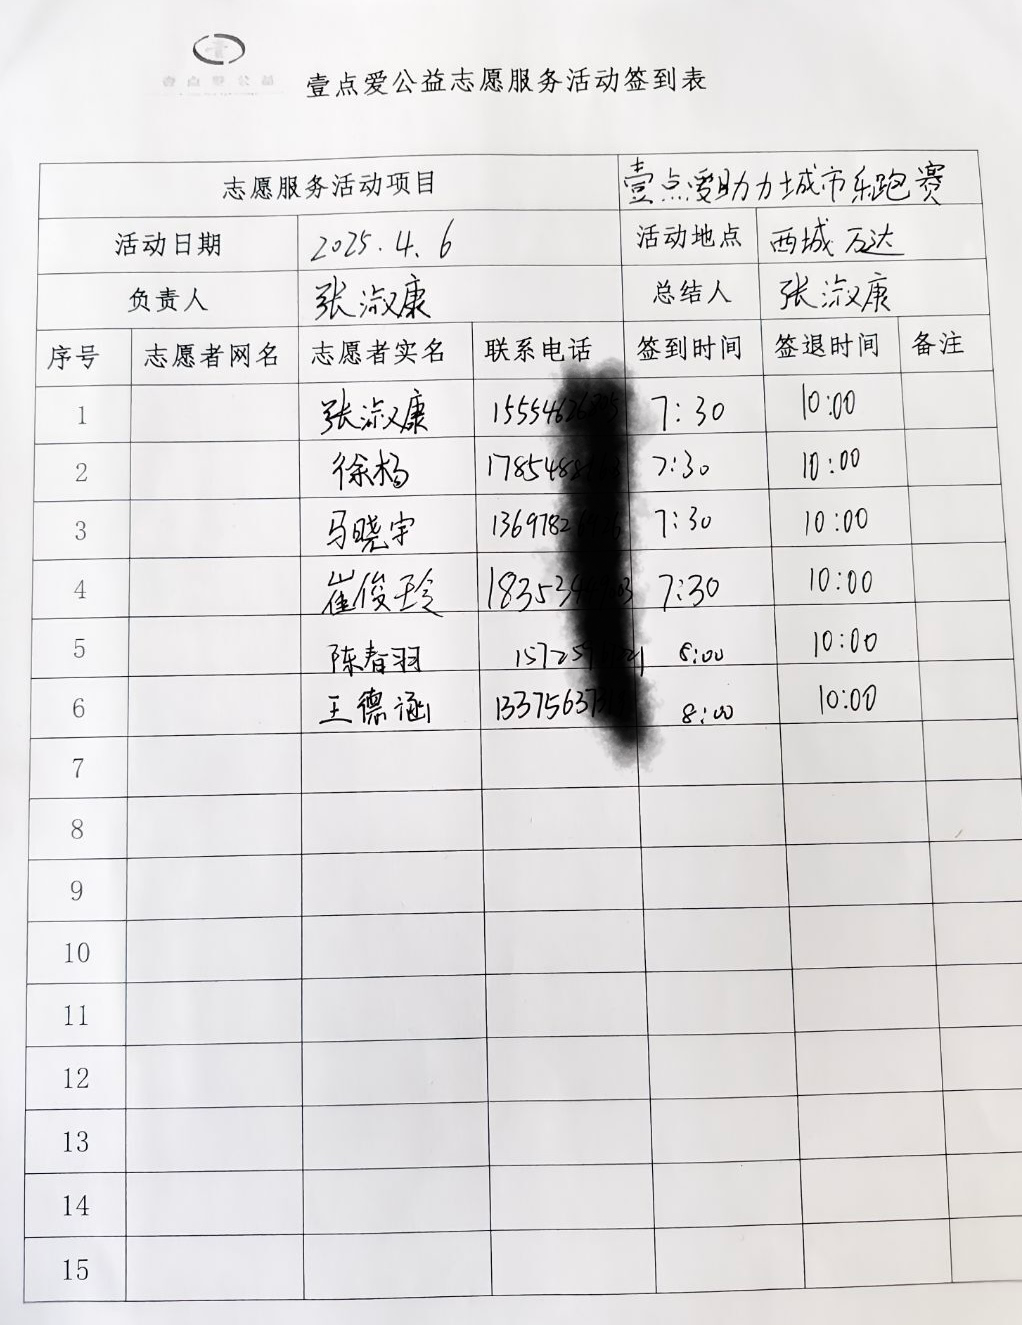 壹点爱公益
壹点爱公益志愿服务活动签到表
志愿服务活动项目 壹点爱助力城市乐跑赛
活动日期 2025.4.6 活动地点 西城万达
负责人 张淑康 总结人 张淑康
序号 志愿者网名 志愿者实名 联系电话 签到时间 签退时间 备注
1 张淑康 7:30 10:00
2 徐杨 7:30 10:00
3 马晓宇 7:30 10:00
4 崔俊玲 7:30 10:00
5 陈春羽 8:00 10:00
6 王德涵 8:00 10:00
7
8
9
10
11
12
13
14
15